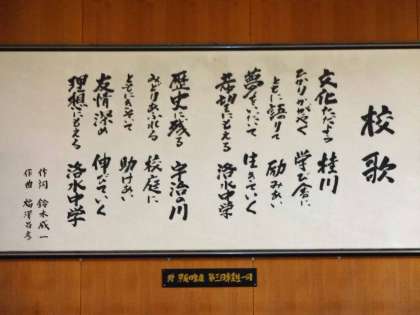 校歌
文化たゞよう 桂川
ひかりかがやく 学び舎に
ともに語りて 励みあい
夢をいだいて 生きていく
希望にもえる 洛水中学
歴史に残る 宇治の川
みどりあふれる 校庭に
ともにきそいて 助けあい
友情深め 伸びていく
理想にもえる 洛水中学
作詞 鈴木成一
作曲
卒業生一同